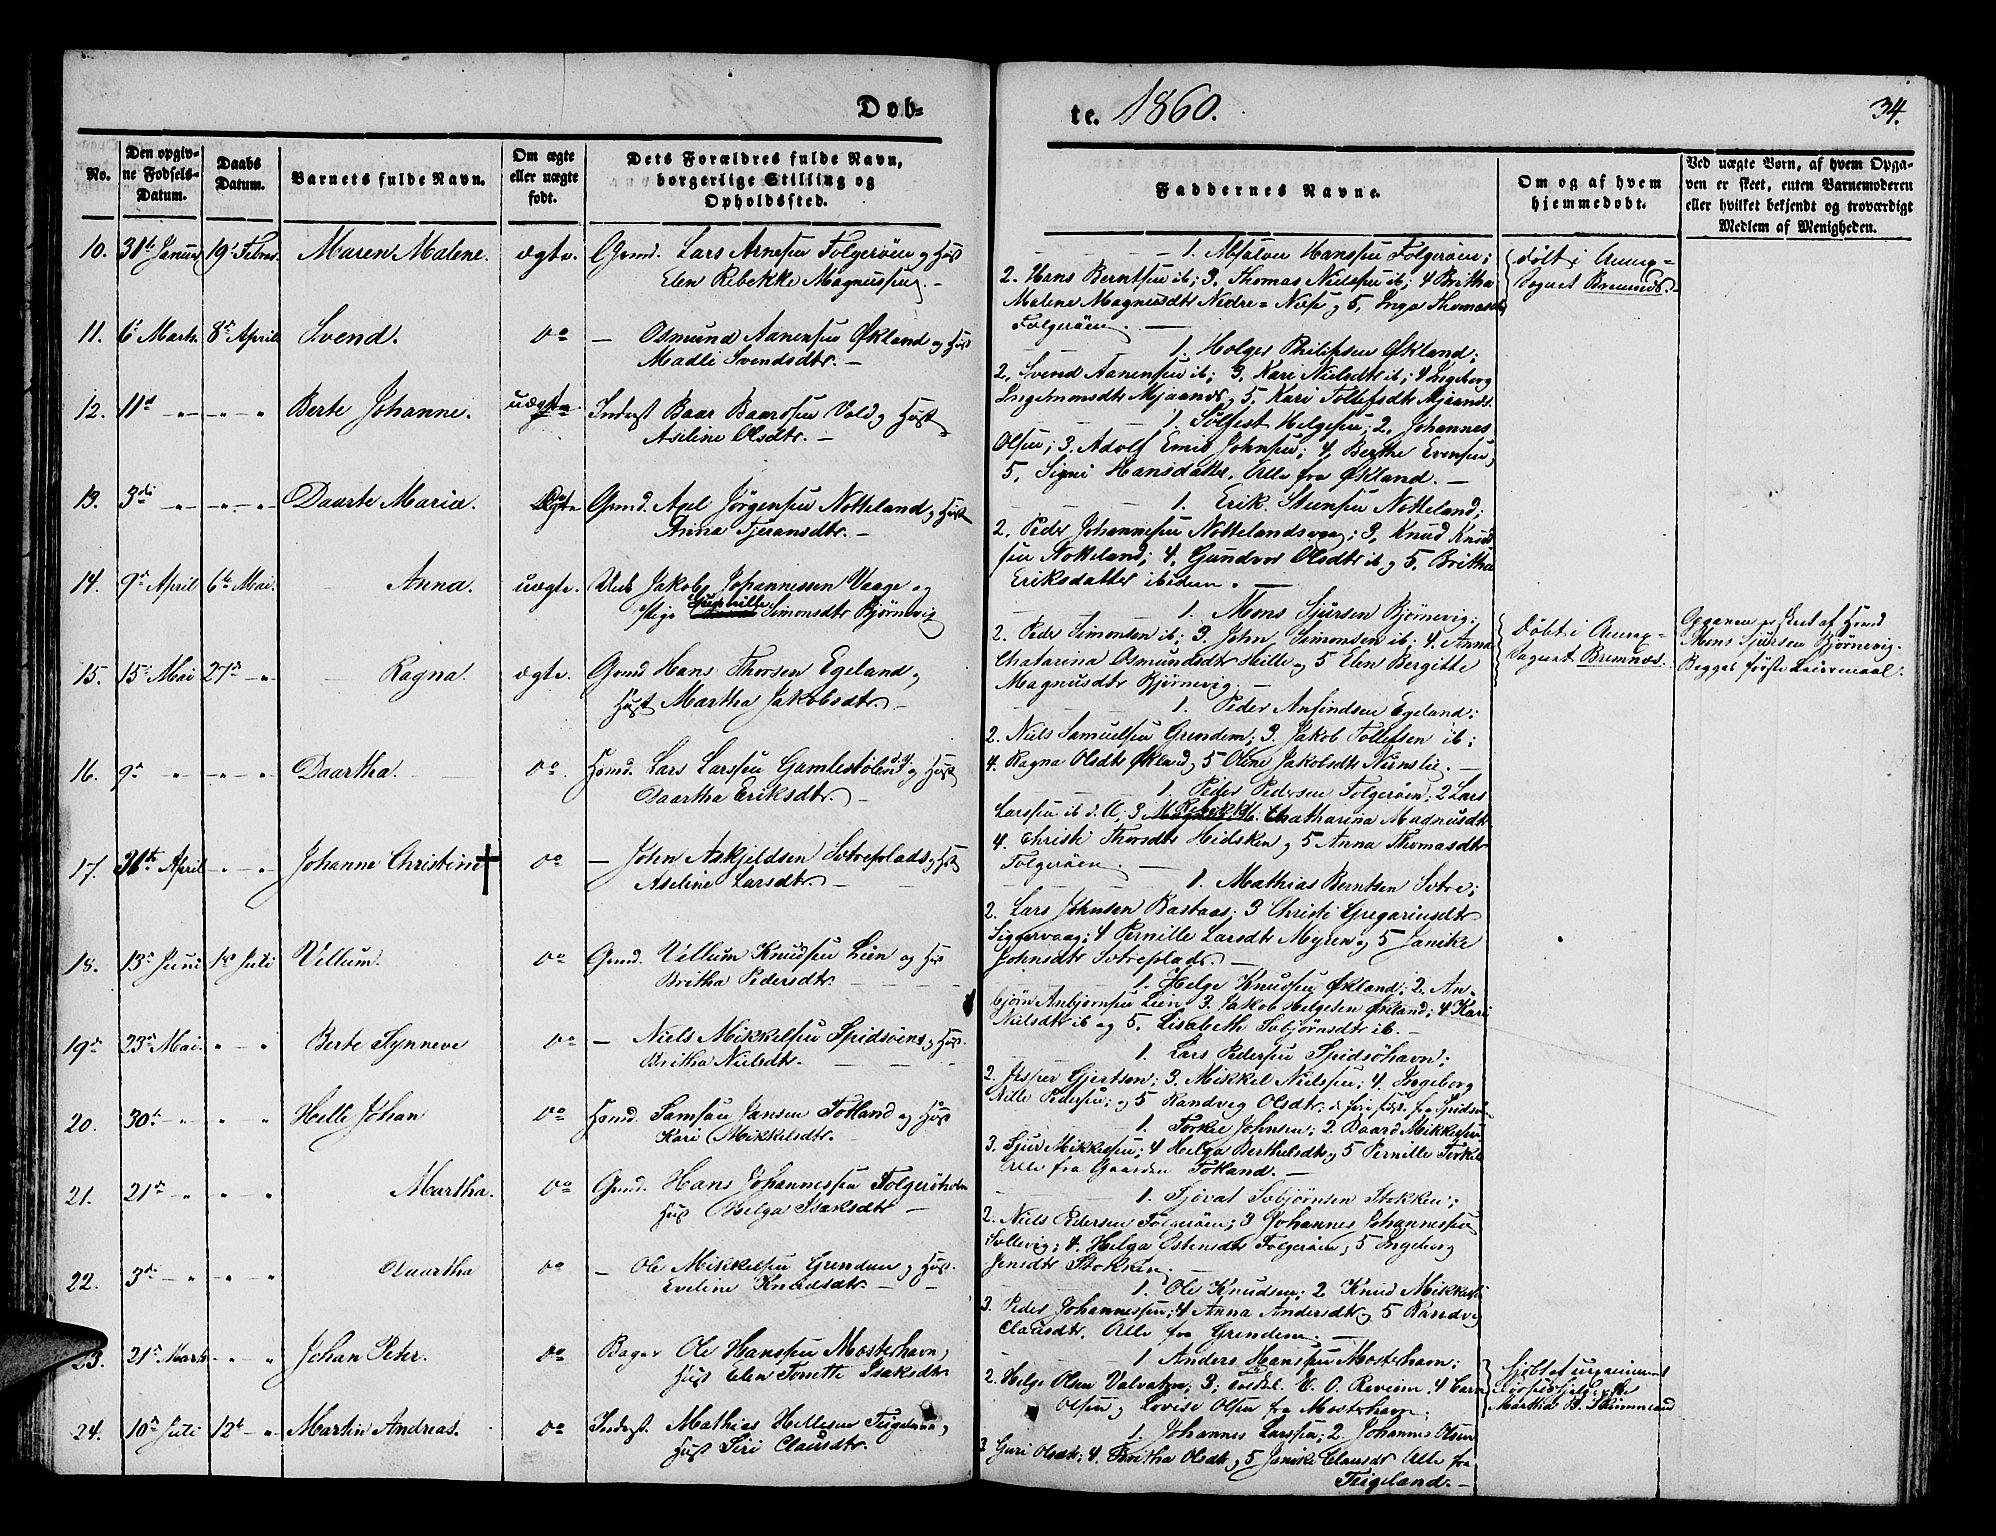 Døb=
te. 1860.
34.
No.
Den opgiv-
ne Fødsels-
Datum.
Daabs
Datum.
Barnets fulde Navn.
Om ægte
eller uægte
født.
Dets Forældres fulde Navn,
borgerlige Stilling og
Opholdssted.
Faddernes Navne.
Om og af hvem
hjemmedøbt.
Ved uægte Børn, af hvem Opga-
ven er skeet, enten Barnemoderen
eller hvilket bekjendt og troværdigt
Medlem af Menigheden.
10. 31te Januar 19de Febr. Maren Malene. ægte. Gmd. Lars Arnesen Folgerøen og Hust
Elen Rebekke Magnussen. —
1. Absalon Hanssen Folgerøen;
2. Hans Berntsen ib; 3. Thomas Nielsen ib; 4 Britha
Malene Magnusdtr Nedre=Næse og 5. Inga Thomasdtr
Folgerøen. —
døbt i Annex-
Sognet Bremnæs.
11. 6te Marts. 8de April Svend. do — Osmund Aanensen Økland og Hust
Madli Svendsdtr. —
1. Holger Philipsen Økland;
2. Svend Aanensen ib; 3. Kari Nielsdtr ib; 4 Ingeborg
Ingelmonsdtr Mjaanæs og 5. Kari Tollefsdtr Mjaanæs.
12. 11te " " " " Berte Johanne. uægte Inderst Baar Baardsen Vold og Hust
Aseline Olsdtr. —
1. Solfest Helgesen; 2. Johannes
Olsen; 3. Adolf Emil Johnsen; 4. Berthe Evensen,
5. Signi Hansdatter. Alle fra Økland. —
13. 3die " " " " Daarte Maria. Ægte Gmd. Axel Jørgensen Notteland og Hust
Anna Tjeransdtr. —
1. Erik Steensen Notteland;
2. Peder Johannesen Nottelandsvaag; 3. Knud Knud
sen Nokeland; 4. Gundvor Olsdtr ib og 5. Britha
Eriksdatter ibidem. —
14. 9de April 6te Mai. Anna. uægte. Unk Jakob Johannessen Vaage og
Pige Gunhille Simonsdtr Bjørnevig
1. Mons Sjursen Bjørnevig;
2. Peder Simonsen ib; 3. John Simonsen ib; 4. Anna
Chatarina Osmundsdtr Hille og 5 Elen Bergitte
Magnusdtr Bjørnevig. —
døbt i Annex-
Sognet Bremnæs.
Opgaven er skeet af Gmd
Mons Sjursen Bjørnevig.
Begges første Leiermaal.
15. 15de Mai 27de " Ragna. ægte. Gmd Hans Thorsen Egeland og
Hust Martha Jakobsdtr. —
1. Peder Anfindsen Egeland;
2. Niels Samuelsen Grendem; 3. Jakob Tollefsen ib;
4. Ragna Olsdtr Økland og 5 Oline Jakobsdtr Nernslie. —
16. 9de " " " Daartha. do. Hsmd. Lars Larssen Gamlestølen og Hust
Daartha Eriksdtr. —
1. Peder Pedersen Folgerøen; 2 Lars
Larssen ib d. Æ; 3 Rebekka Chatharina Magnusdtr
4. Christi Thorsdtr Hidsken og 5 Anna Thomasdtr
Folgerøen. —
17. 31te April " " Johanne Christine † do — John Askjeldsen Sotreplads og Hust
Aseline Larsdtr. —
1. Mathias Berntsen Sotre;
2. Lars Johnsen Bastaas; 3 Christi Gregoriusdtr
Siggervaag; 4 Pernille Larsdtr Myren og 5 Janike
Johnsdtr Sotreplads. —
18. 13de Juni 1ste Juli Villum. do Gmd. Villum Knudsen Lien og Hus
Britha Pedersdtr.
1. Helge Knudsen Økland; 2. An-
bjørn Anbjørnsen Lien; 3. Jakob Helgesen Økland; 4 Kari
Nielsdtr ib og 5. Lisabeth Sobjørnsdtr ib. —
19de 23de Mai. " " Berte Synneve do — Niels Mikkelsen Spidsøens og Hus.
Britha Nielsdtr.
1. Lars Pedersen Spidsøhavn;
2. Jesper Gjertsen; 3. Mikkel Nielsen; 4. Ingeborg
Nille Pedersen; og 5 Randveg Olsdtr; de fire sidste fra Spidsøn
20. 30te " " " Helle Johan do Hsmd. Samson Jansen Totland og Hust
Kari Mikkelsdtr. —
1. Torkel Johnsen; 2. Baard Mikkelsen
3. Sjur Mikkelsen; 4 Helga Berthelsdtr og 5 Pernille Torkels
Alle fra Gaarden Totland. —
21. 21de " " " Martha. do Gmd. Hans Johannessen Folgerøholm
Hus Helga Isaksdtr —
1. Sjovat Sobjørnsen Stokken;
2. Niels Pedersen Folgerøen; 3 Johannes Johannessen
Sollevig; 4. Helga Østensdtr Folgerøen og 5 Ingeborg
Jensdtr Stokken. —
22. 3die " " " Daartha do — Ole Mikkelsen Grendem og Hust.
Eveline Knudsdtr. — —
1. Ole Knudsen; 2 Knud Mikkelsen
3. Peder Johannessen; 4 Anna Andersdtr og 5 Randvig
Clausdtr. Alle fra Grendem. —
23. 21de Marts " " Johan Peter. do Bager Ole Hanssen Mosterhavn,
Hust Elen Tonette Isaksdtr
1 Anders Hanssen Mosterhavn;
2. Helge Olsen Valvatne; 3; E. O. Revisen 4 Caren
Olsen og Lovise Olsen fra Mosterhavn;
24. 10de Juli 12te " Martin Andreas. do Inderst. Mathias Hellesen Tegeland,
Hust Siri Clausdtr.
1. Johannes Larssen; 2. Johannes Olsen
3 Guri Olsdtr; 4. Britha Olsdtr og 5 Janike Clausdtr Alle fra
Tegeland. —